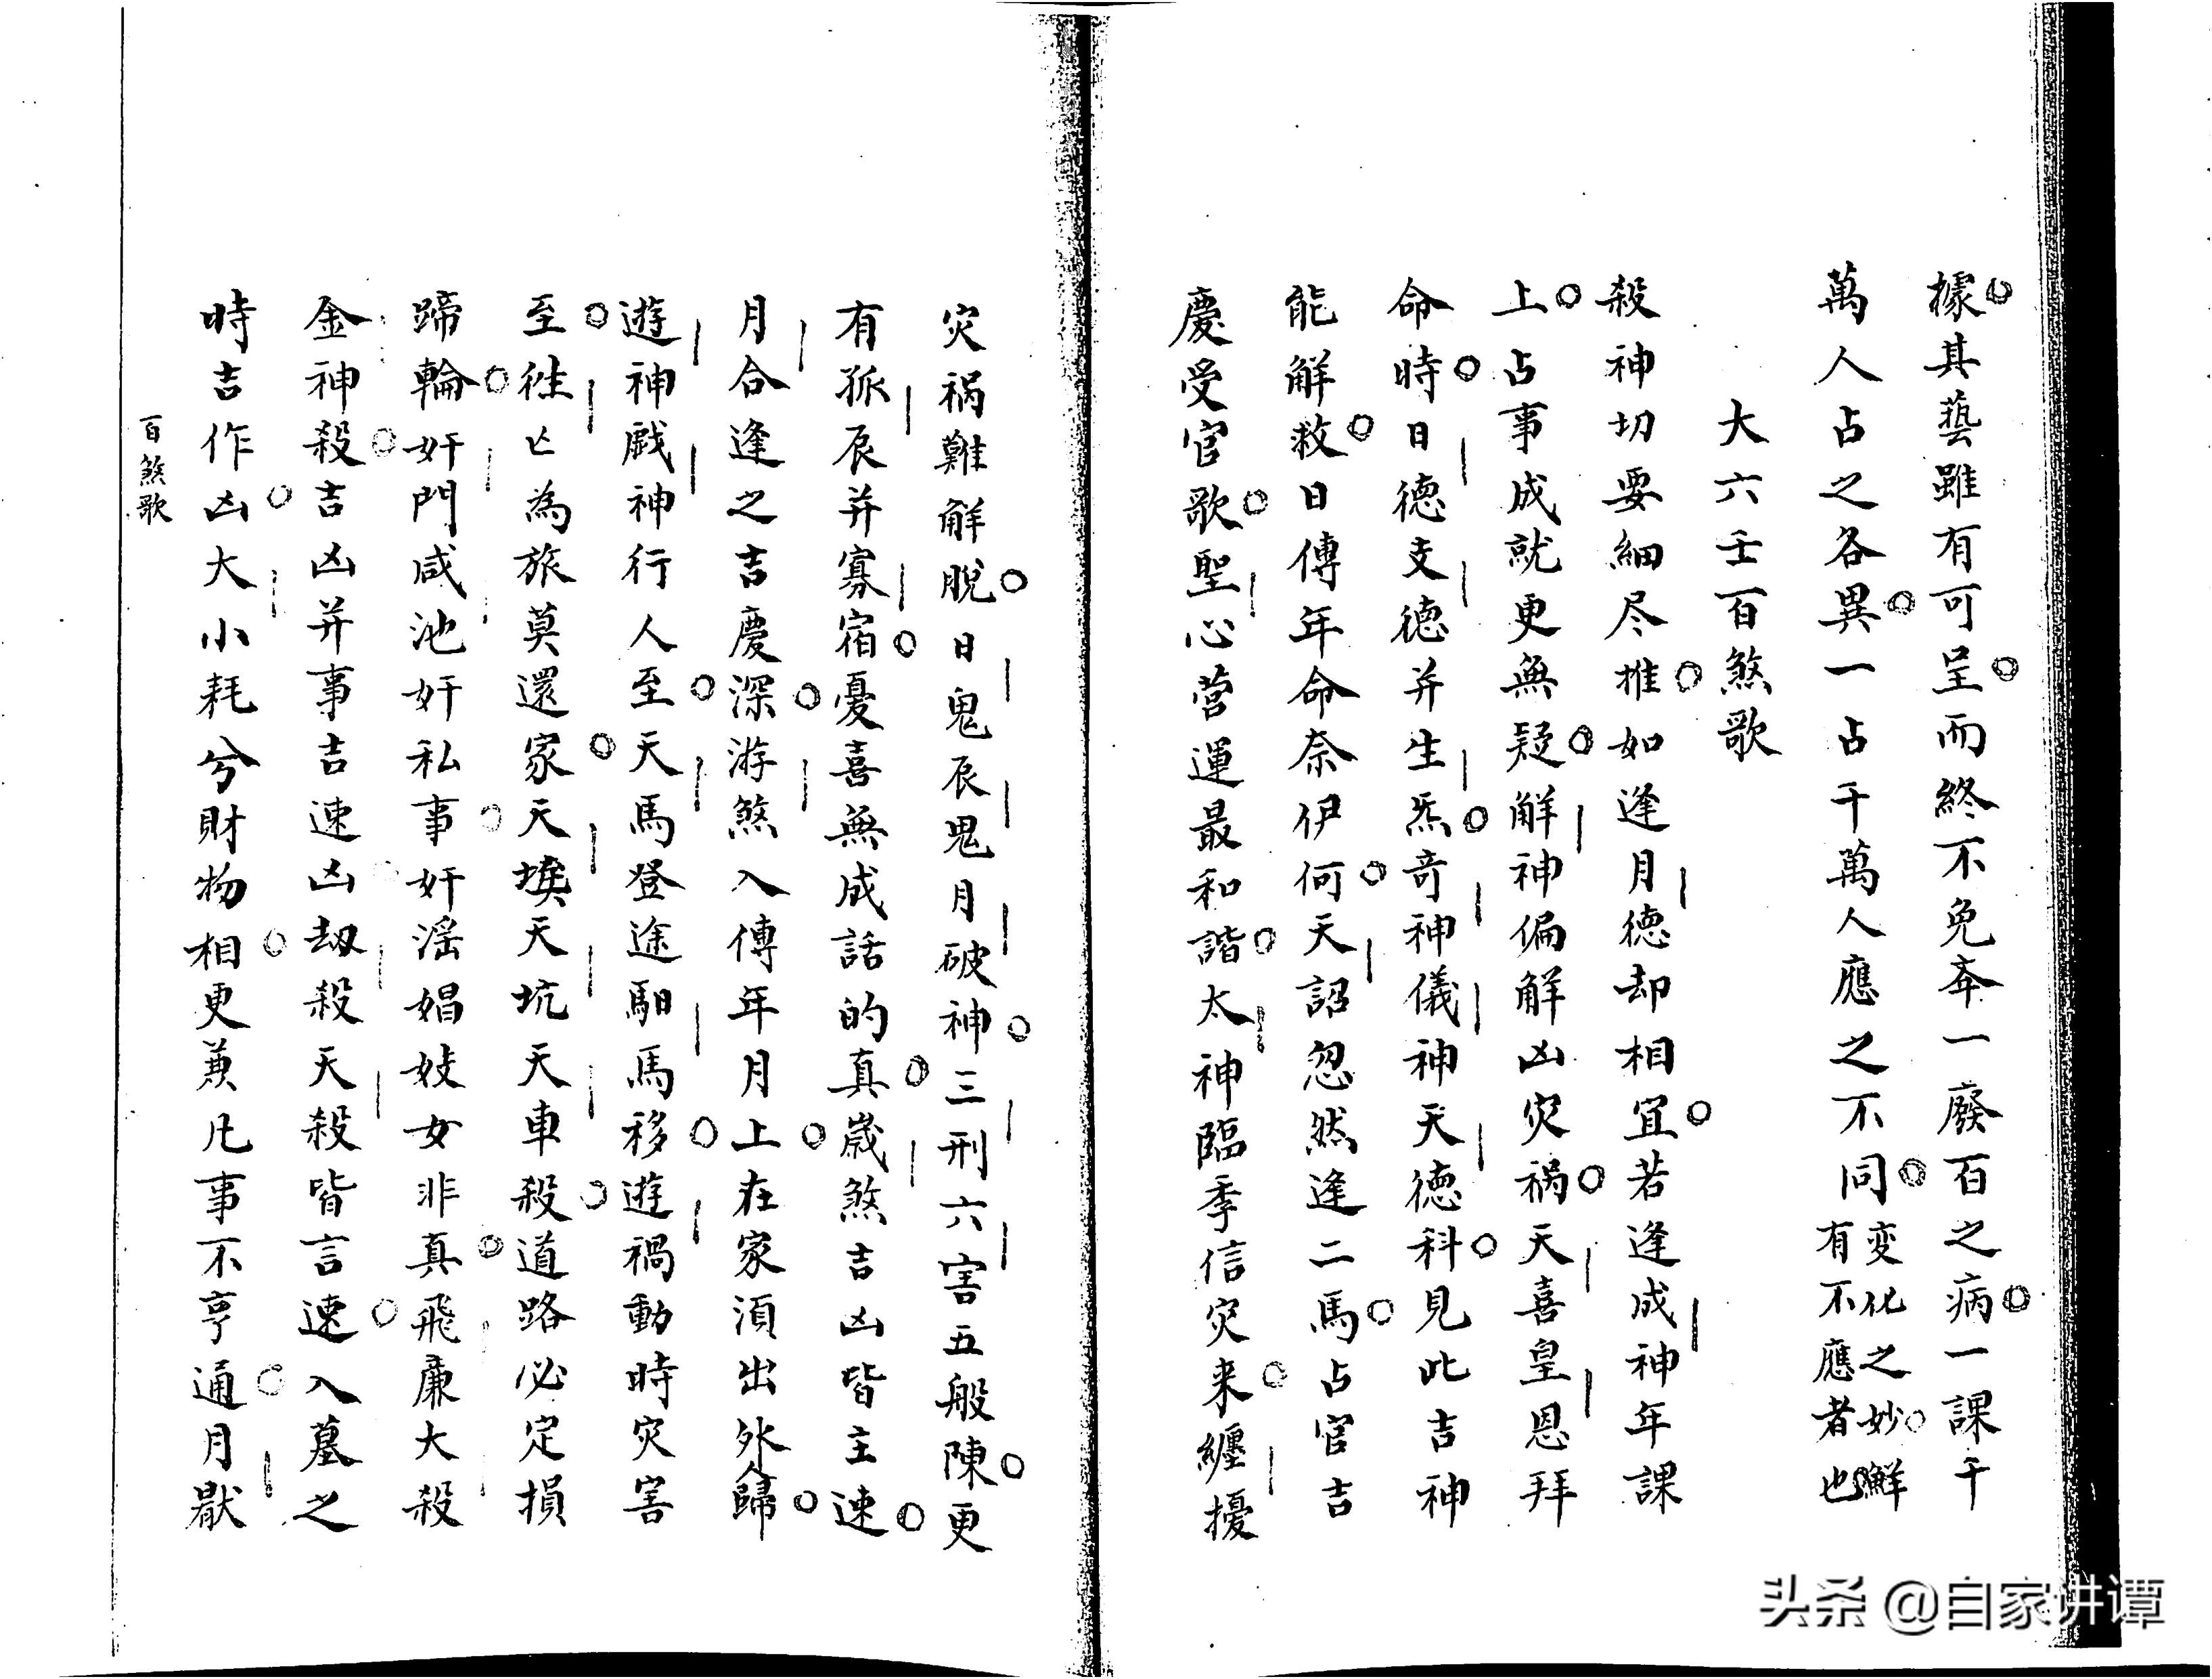 據其藝雖有可呈而終不免奔一廢百之病一課千
萬人占之各異一占千萬人應之不同变化之妙鮮
有不應者也
大六壬百煞歌
殺神切要細尽推如逢月德却相宜若逢成神年課
上占事成就更無疑解神偏解凶灾祸天喜皇恩拜
命時日德支德并生炁奇神儀神天德科見此吉神
能解救日傳年命奈伊何天詔忽然逢二馬占官吉
慶受官歌聖心营運最和諧太神臨季信灾来纏擾
灾祸難解脫日鬼辰鬼月破神三刑六害五般陳更
有孤辰并寡宿憂喜無成話的真歲煞吉凶皆主速
月合逢之吉慶深游煞入傳年月上在家湏出外歸
遊神戯神行人至天馬登途馹馬移遊禍動時灾害
至徃亡為旅莫還家天埃天坑天車殺道路必定損
蹄輪奸門咸池奸私事奸淫娼妓女非真飛廉大殺
金神殺吉凶并事吉速凶刼殺天殺皆言速入墓之
時吉作凶大小耗兮財物相更兼凡事不亨通月厭
百煞歌
头条 @自家讲谭